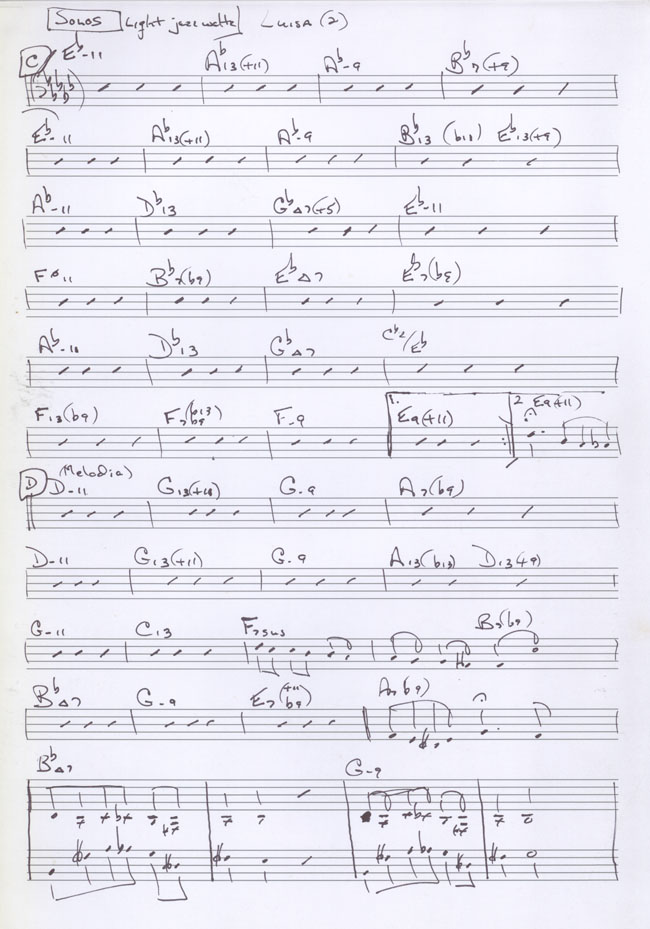 SOLOS Light jazz waltz LUISA (2)
C E♭-11 A♭13(+11) A♭-9 B♭7(+9)
E♭-11 A♭13(+11) A♭-9 B♭13 (b13) E♭13(+9)
A♭-11 D♭13 G♭△7(+5) E♭-11
Fø11 B♭7(b9) E♭△7 E♭7(b9)
A♭-11 D♭13 G♭△7 C♭2/E♭
F13(b9) F7(b13 b9) F-9 1. E9(+11) 2 E9(+11)
D (Melodia)
D-11 G13(+11) G-9 A7(b9)
D-11 G13(+11) G-9 A13(b13) D13(+9)
G-11 C13 F7sus B7(b9)
B♭△7 G-9 E7(+11 b9) A7(b9)
B♭△7 G-9